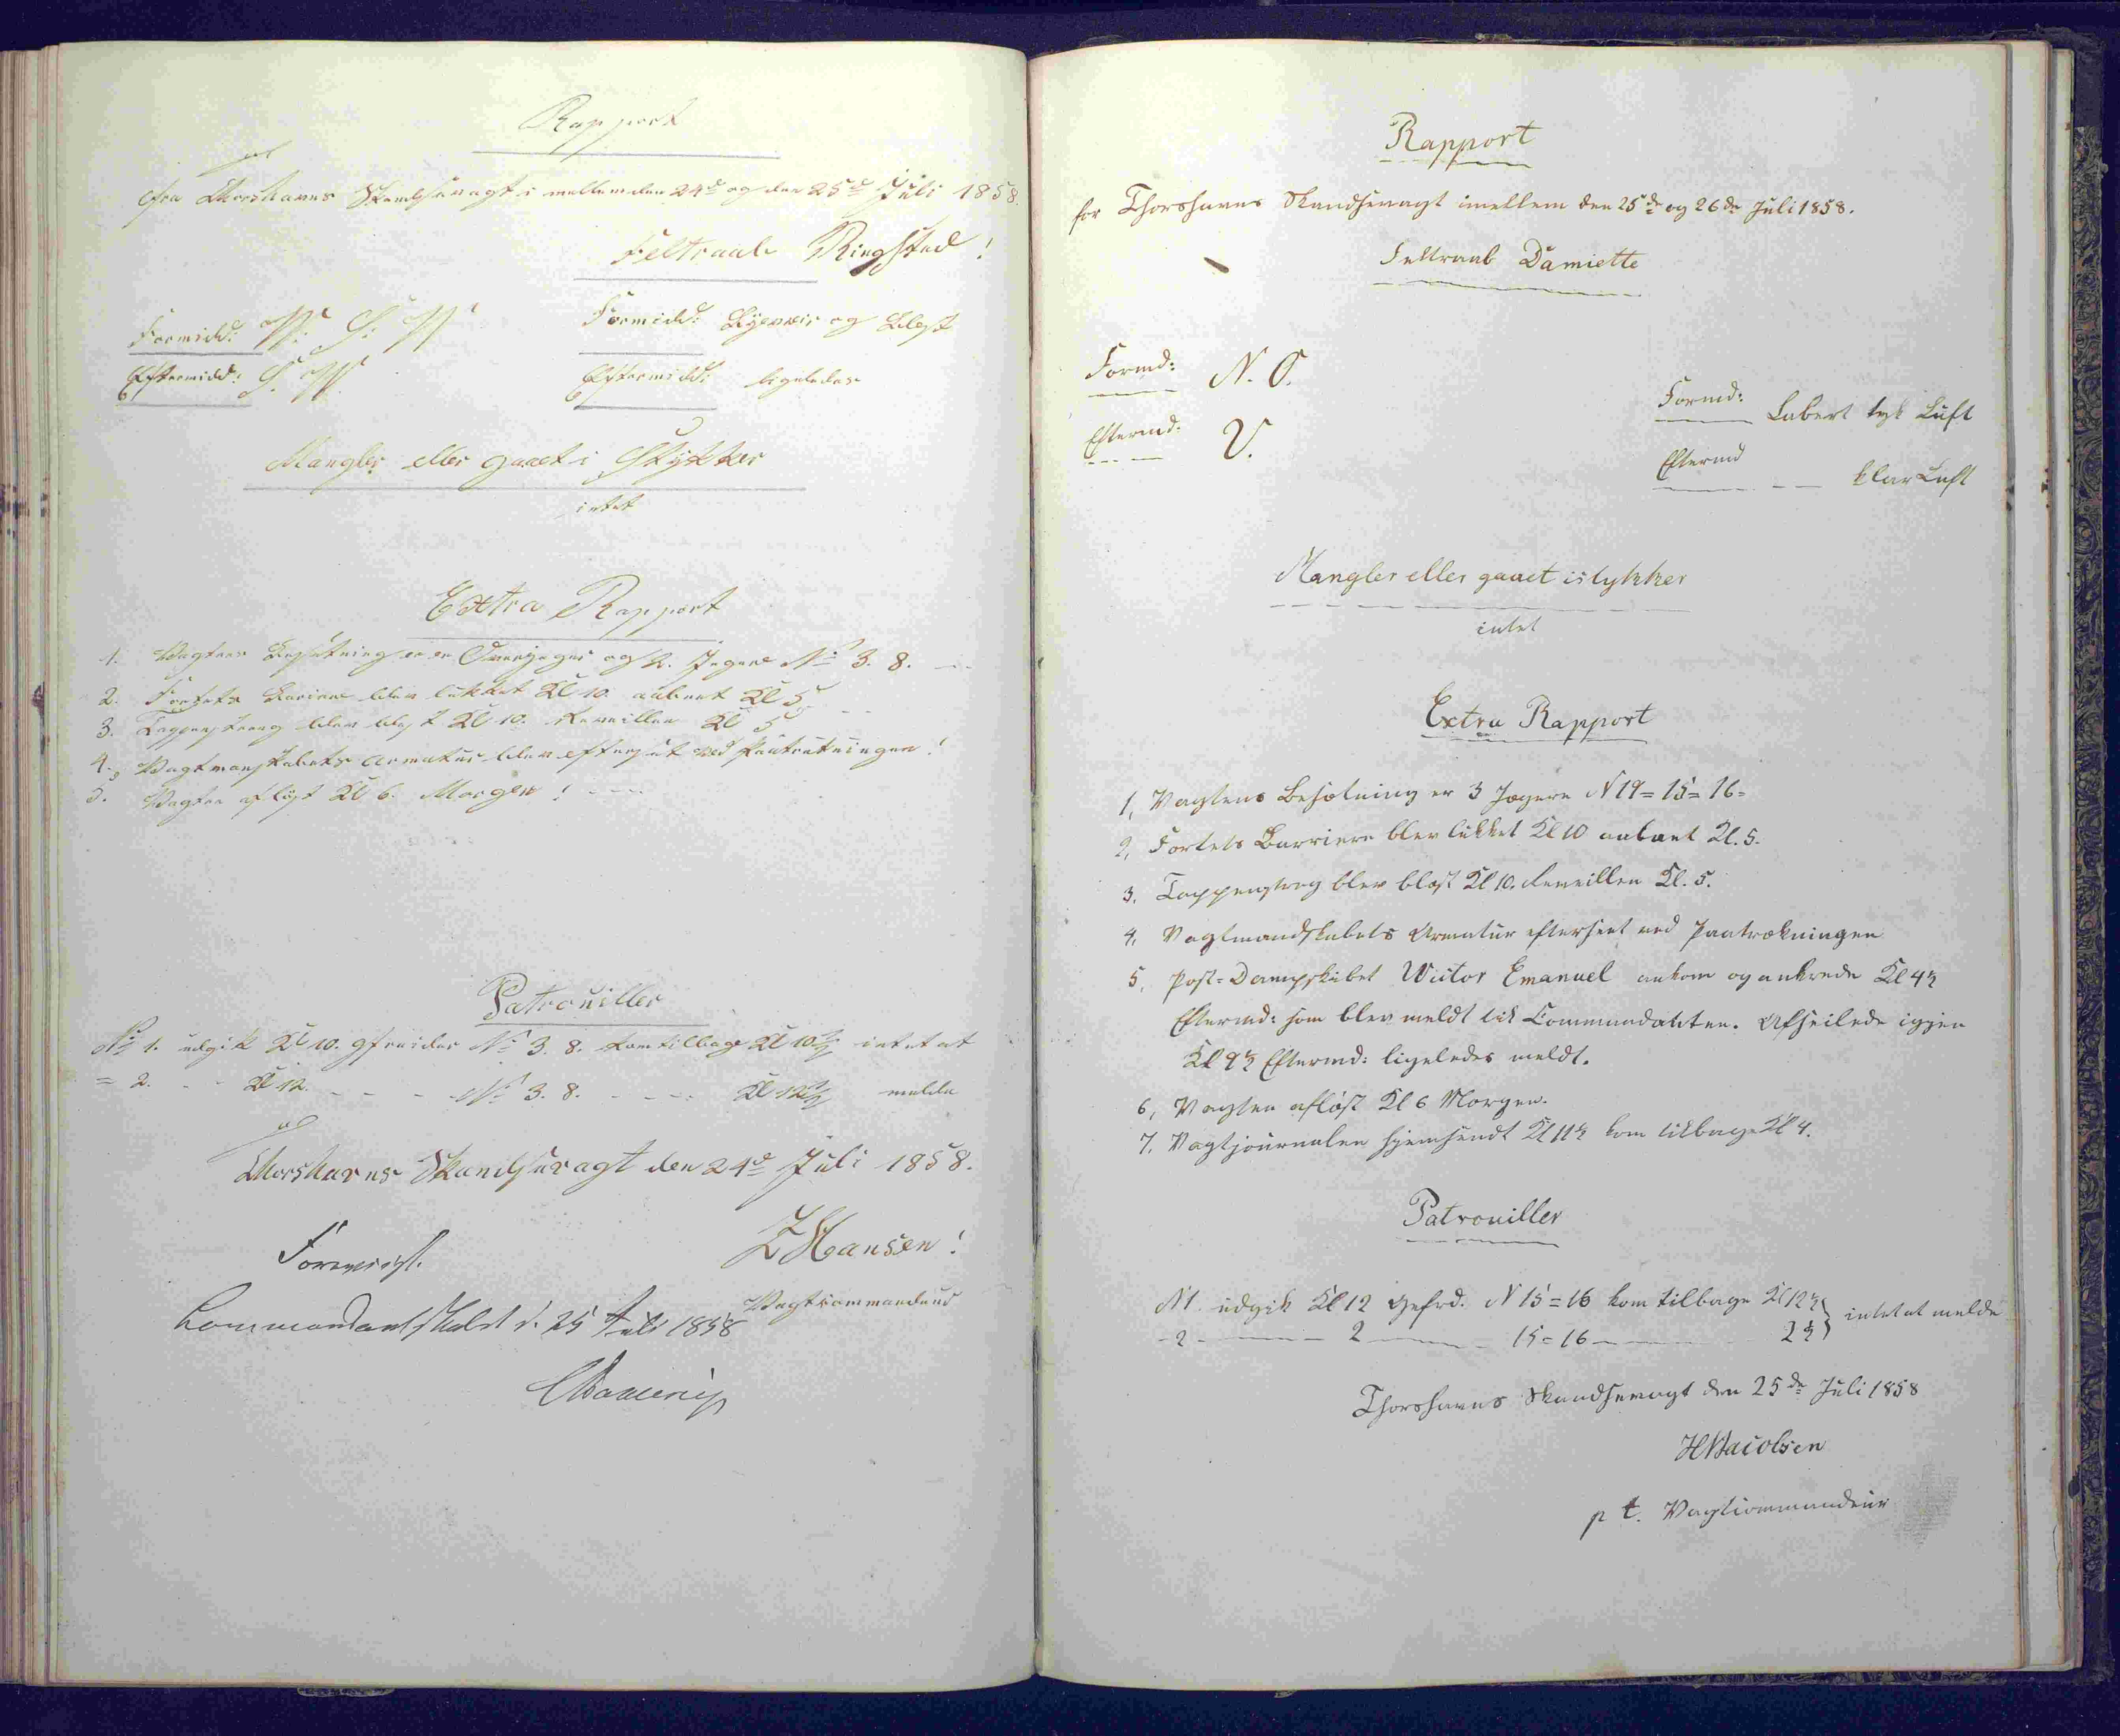 Rapport
fra Thorshavns Skandsevagt i mellem den 24d og den 25d Juli 1858.
Feltraab Ringsted!
Formidd: V. S. V.
Formidd: Byeveir og Blæst
Eftermidd: S. V.
Eftermidd: ligeledes
Mangler eller gaaet i Stykker
intet
Extra Rapport
1. Vagtens Besætning er en Overjæger og 2. Jægere No 3. 8.
2. Fortets Bariere blev lukket Kl 10. aabnet Kl 5
3. Tappenstræg blev blæst Kl 10. Reveillen Kl 5
4., Vagtmanskabets Armatur blev efterset ved Paatrædningen!
5. Vagten afløst Kl 6. Morgen!
Patrouiller
No 1. udgik Kl 10. gfreider No 3. 8. kom tilbage Kl 10½ intet at
= 2. - - Kl 12. - - - No 3. 8. - - - Kl 12½ melde
Thorshavns Skandsevagt den 24d Juli 1858.
Forevist.
Z Hansen!
Vagtcommandeur
Commandantskabet d. 25 Juli 1858
Rapport
for Thorshavns Skandsevagt imellem den 25de og 26de Juli 1858.
Feltraab Damiette
Formd: N. O.
Formd: Labert tyk Luft
Eftermd: V.
Eftermd klar Luft
Mangler eller gaaet istykker
intet
Extra Rapport
1, Vagtens Besætning er 3 Jægere N 19 = 15 = 16 =
2, Fortets Barriere blev lukket Kl 10 aabnet Kl. 5.
3, Tappenstreg blev blæst Kl 10. Reveillen Kl. 5.
4, Vagtmandskabets Armatur efterseet ved Paatrækningen
5, Post=Dampskibet Wictor Emanuel ankom og ankrede Kl 4½
Eftermd: som blev meldt til Commandanten. Afseilede igjen
Kl 9½ Eftermd: ligeledes meldt.
6, Vagten afløst Kl 6 Morgen.
7. Vagtjournalen hjemsendt Kl 11½ kom tilbage Kl 4.
Patrouiller
N1. udgik Kl 12 Gefrd. N 15 = 16 kom tilbage Kl 12½ } intet at melde
- 2 - 2 - 15 = 16 - 2½
Thorshavns Skandsevagt den 25de Juli 1858
Jacobsen
p t. Vagtcommandeur